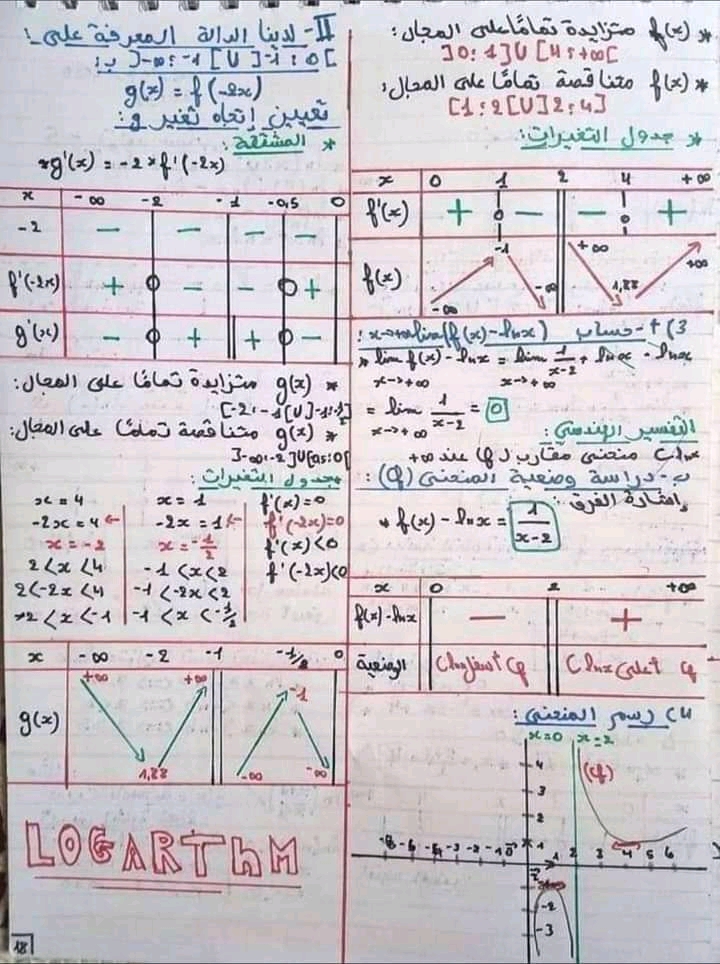 * f(x) متزايدة تمامًا على المجال:
]0:1]U[4:+∞[
* f(x) متناقصة تمامًا على المجال:
[1:2[U]2:4]
* جدول التغيرات:
x 0 1 2 4 +∞
f'(x) + 0 - - 0 +
f(x) -∞ -1 -∞ +∞ 1,88 +∞
3) أ- حساب lim(f(x)-lnx) x→+∞:
* lim f(x) - lnx = lim 1/(x-2) + lnx - lnx
x→+∞ x→+∞
= lim 1/(x-2) = 0
x→+∞
التفسير الهندسي:
C lnx منحنى مقارب لـ Cf عند +∞
ب- دراسة وضعية المنحنى (Cf):
إشارة الفرق:
* f(x) - lnx = 1/(x-2)
x 0 2 +∞
f(x)-lnx - +
الوضعية Cf أسفل C lnx Cf أعلى C lnx
4) رسم المنحنى:
x=0 x=2
(Cf)
4
3
2
1
-3 -2 -1 0 1 2 3 4 5 6
-2
-3
II- لدينا الدالة المعرفة على:
]-∞:-1[U]-1:0[ بـ:
g(x) = f(-2x)
تعيين إتجاه تغير g:
* المشتقة:
* g'(x) = -2 × f'(-2x)
x -∞ -2 -1 -0,5 0
-2 - - - -
f'(-2x) + 0 - - 0 +
g'(x) - 0 + + 0 -
* g(x) متزايدة تمامًا على المجال:
[-2:-1[U]-1:-1/2]
* g(x) متناقصة تمامًا على المجال:
]-∞:-2]U[0,5:0[
* جدول التغيرات:
x=4 x=1 f'(x)=0
-2x=4 ← -2x=1 ← f'(-2x)=0
x=-2 x=-1/2 f'(x)<0
2<x<4 -1<x<2 f'(-2x)<0
2<-2x<4 -1<-2x<2
-2<x<-1 -1<x<-1/2
x -∞ -2 -1 -1/2 0
g(x) +∞ 1,88 +∞ -∞ -1 -∞
LOGARThM
18